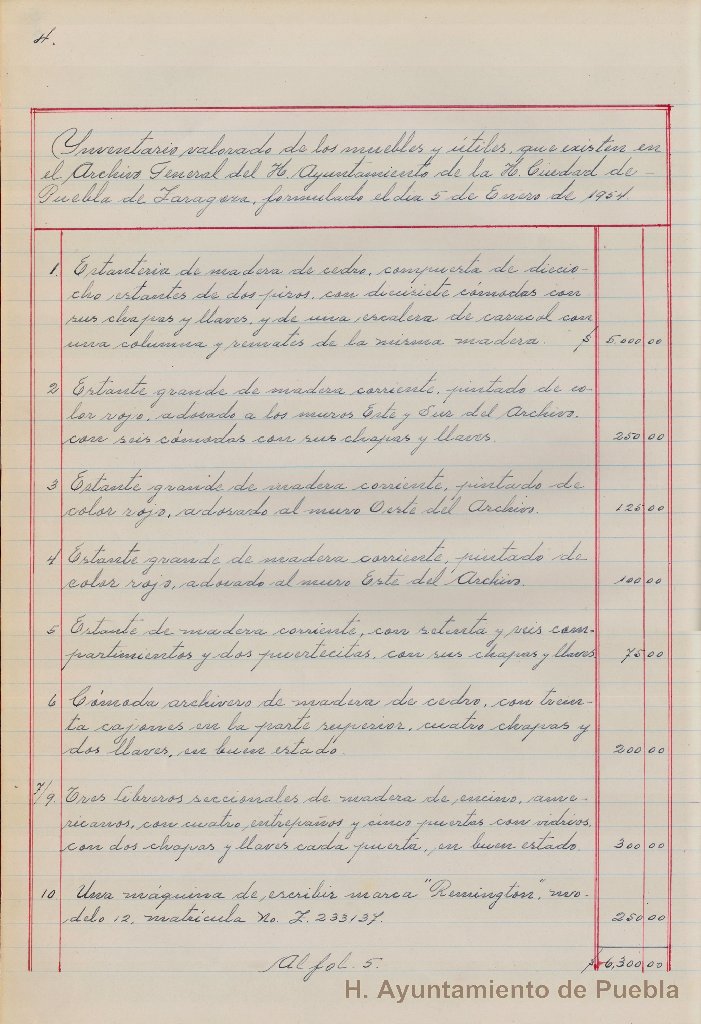 4.
Ynventario valorado de los muebles y útiles, que existen en
el Archivo General del H. Ayuntamiento de la H. Ciudad de-
Puebla de Zaragoza, formulado el dia 5 de Enero de 1954
1. Estanteria de madera de cedro, compuesta de diecio-
cho estantes de dos pisos, con diecisiete cómodas con
sus chapas y llaves, y de una escalera de caracol con
una columna y remates de la misma madera. $ 5.000 00
2 Estante grande de madera corriente, pintado de co-
lor rojo, adosado a los muros Este y Sur del Archivo,
con seis cómodas con sus chapas y llaves. 250 00
3 Estante grande de madera corriente, pintado de
color rojo, adosado al muro Oeste del Archivo. 125 00
4 Estante grande de madera corriente, pintado de
color rojo, adosado al muro Este del Archivo. 100 00
5 Estante de madera corriente, con setenta y seis com-
partimientos y dos puertecitas, con sus chapas y llaves 75 00
6 Cómoda archivero de madera de cedro, con trein-
ta cajones en la parte superior, cuatro chapas y
dos llaves, en buen estado. 200 00
7/9. Tres libreros seccionales de madera de encino, ame-
ricanos, con cuatro entrepaños y cinco puertas con vidrios,
con dos chapas y llaves cada puerta, en buen estado. 300 00
10 Una máquina de escribir marca "Remington", mo-
delo 12, matrícula No. Z. 233137. 250 00
Al fol. 5. $ 6,300 00
H. Ayuntamiento de Puebla